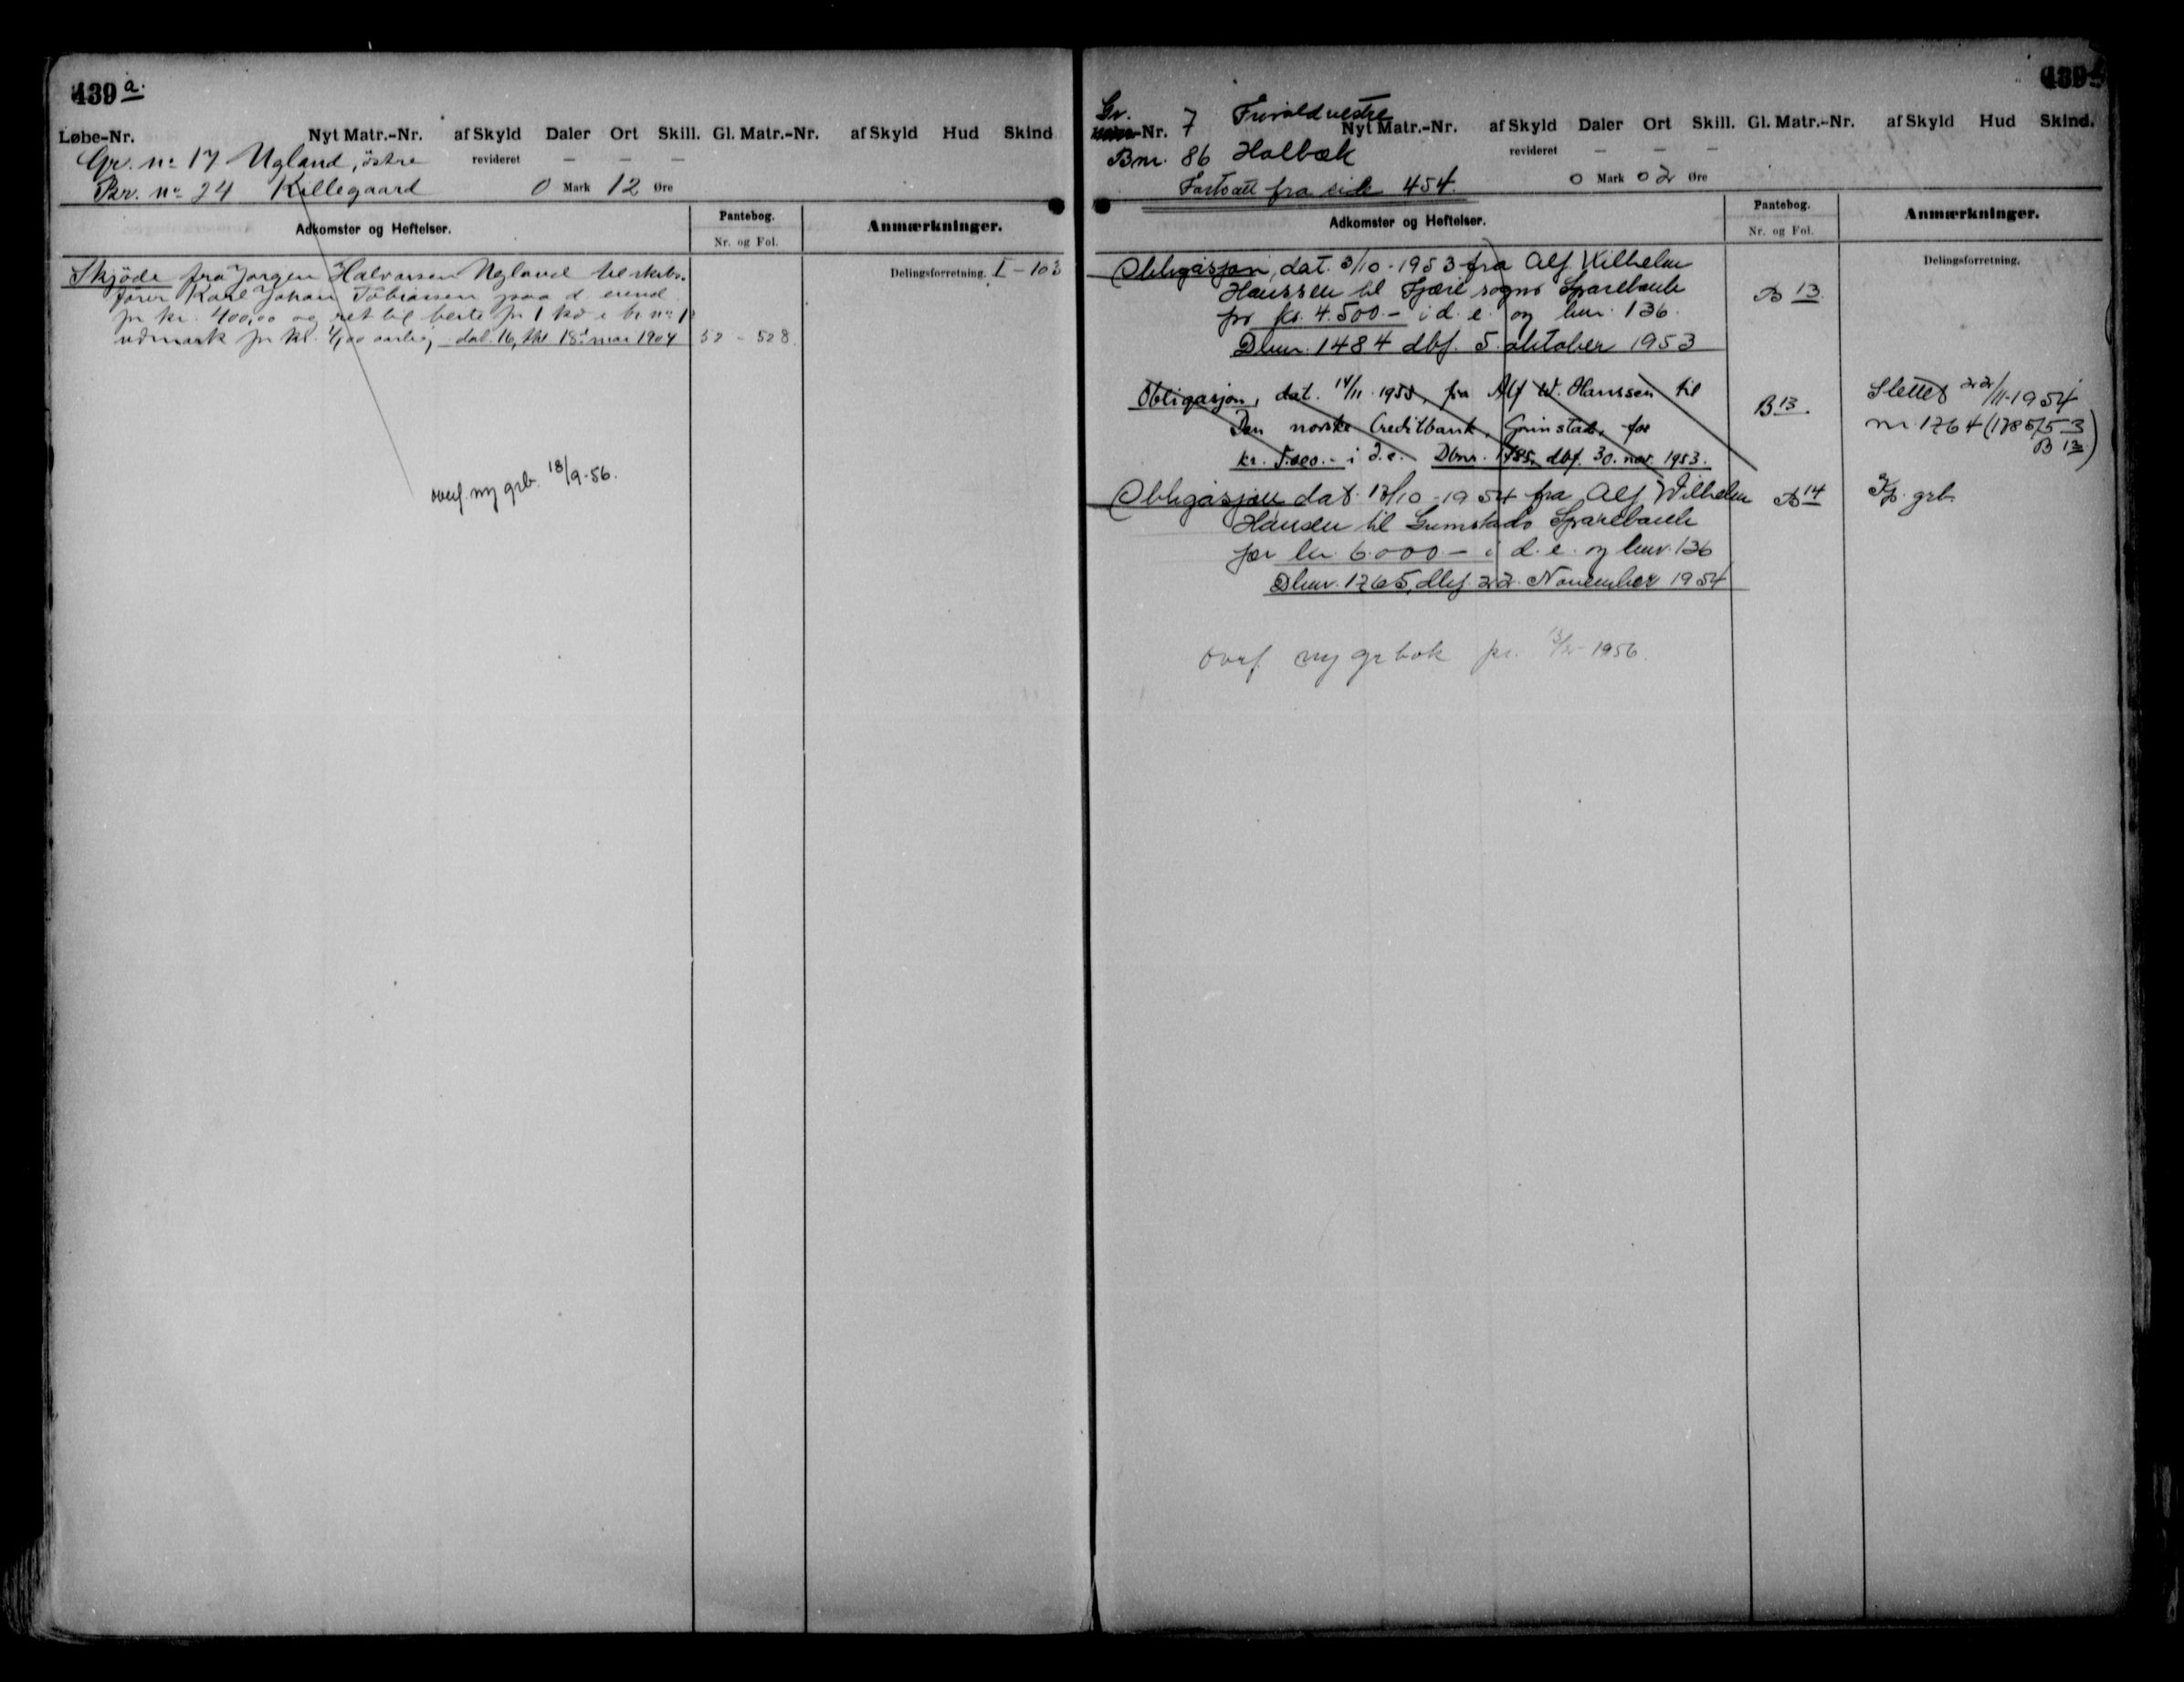 439 a.
Løbe-Nr. Nyt Matr.-Nr. af Skyld Daler Ort Skill. Gl. Matr.-Nr. af Skyld Hud Skind
Gr. nº 17 Ugland, östre revideret — — —
Br. nº 24 Killegaard 0 Mark 12 Øre
Adkomster og Heftelser. Pantebog. Anmærkninger.
Nr. og Fol.
Skjöde fra Jörgen Halvorsen Ugland til skibs- Delingsforretning. I - 103
förer Karl Johan Tobiassen paa d. eiend.
for kr. 400,00 og ret til beite for 1 ko i br nº 1s
udmark for kr. 4,00 aarlig, dat. 16, thl 18 mai 1904 52 - 528.
overf. ny grb. 18/9-56.
439
Gr.
-Nr. 7 vestre Nyt Matr.-Nr. af Skyld Daler Ort Skill. Gl. Matr.-Nr. af Skyld Hud Skind.
Bnr. 86 Holbæk revideret — — —
Fortsatt fra side 454. 0 Mark 02 Øre
Adkomster og Heftelser. Pantebog. Anmærkninger.
Nr. og Fol.
Delingsforretning.
Obligasjon, dat. 3/10-1953 fra Alf Wilhelm
Hanssen til Fjære sogns Sparebank B 13
for kr. 4.500.- i d. e. og bnr. 136.
Dbnr. 1484 dbf. 5. oktober 1953
Obligasjon, dat. 14/11 1953, fra Alf W. Hanssen til B 13. Slettet 22/11-1954
Den norske Creditbank, Grimstad, for nr 1764 (1785/53
kr. 5.000.- i d.e. Dbnr. 1785, dbf. 30. nov. 1953. B 13)
Obligasjon dat. 13/10-1954 fra Alf Wilhelm B 14 Kp. grb.
Hansen til Grimstads Sparebank
for kr. 6.000.- i d. e. og bnr. 136
Dbnr. 1765, dbf. 22. November 1954
overf ny grbok pr. 1956.